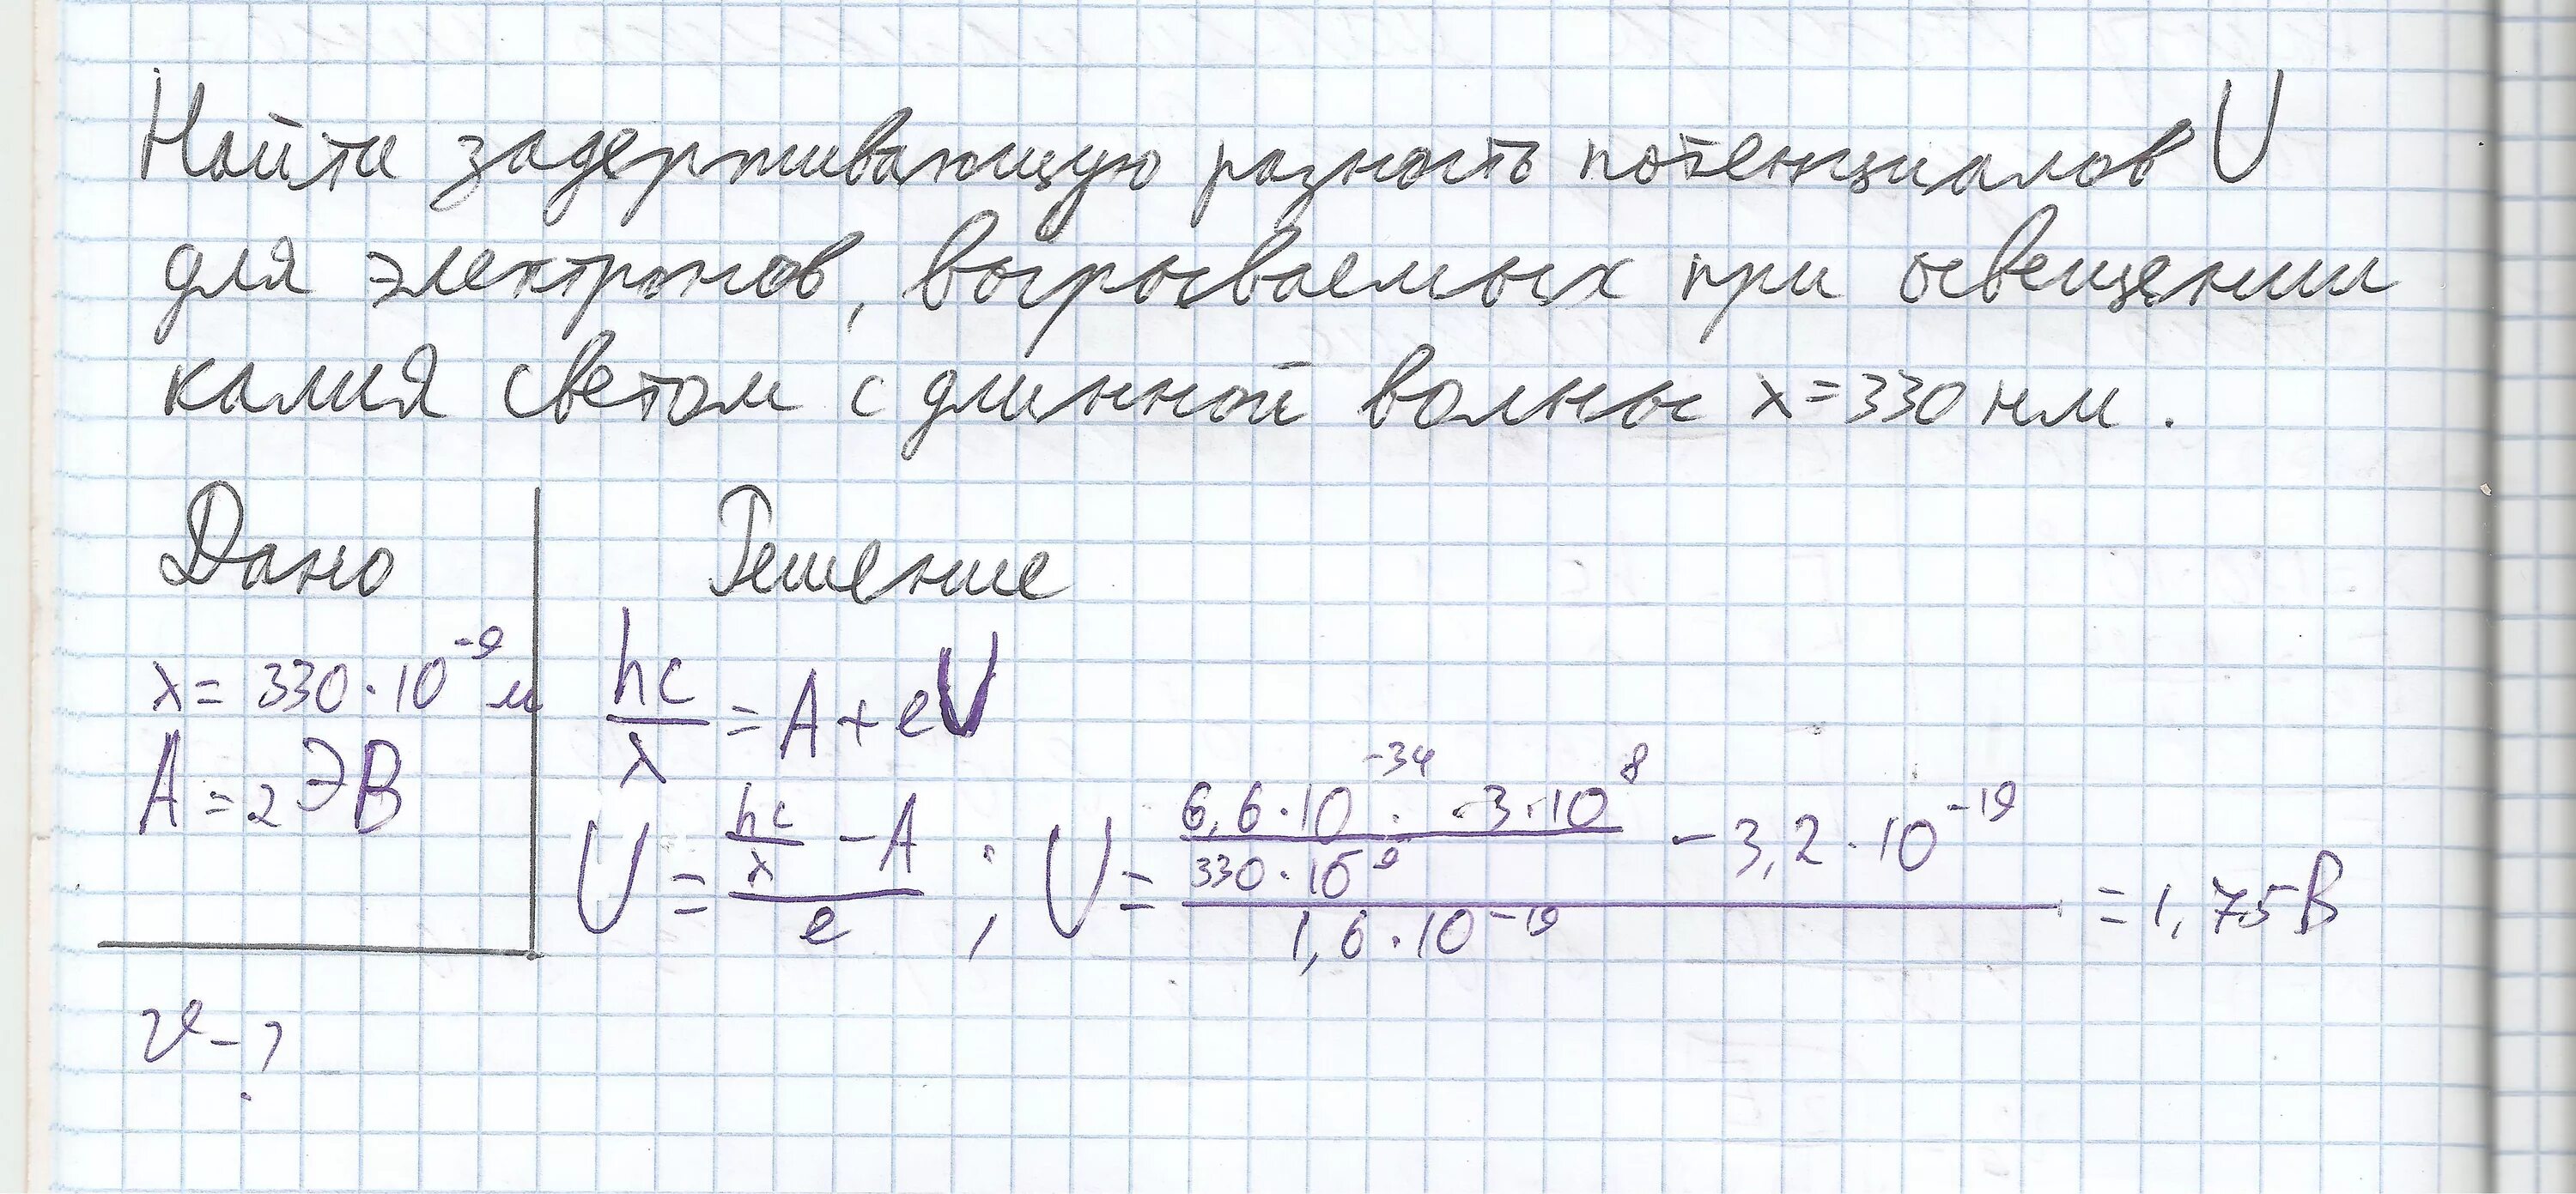 Найти задерживающую разность потенциалов U
для электронов, вырываемых при освещении
калия светом с длинной волны λ=330 нм.
Дано
Решение
λ = 330·10⁻⁹ м
A = 2 ЭВ
υ - ?
hc/λ = A + eU
U = (hc/λ - A)/e ; U = ((6,6·10⁻³⁴ · 3·10⁸)/(330·10⁻⁹) - 3,2·10⁻¹⁹)/(1,6·10⁻¹⁹) = 1,75 В